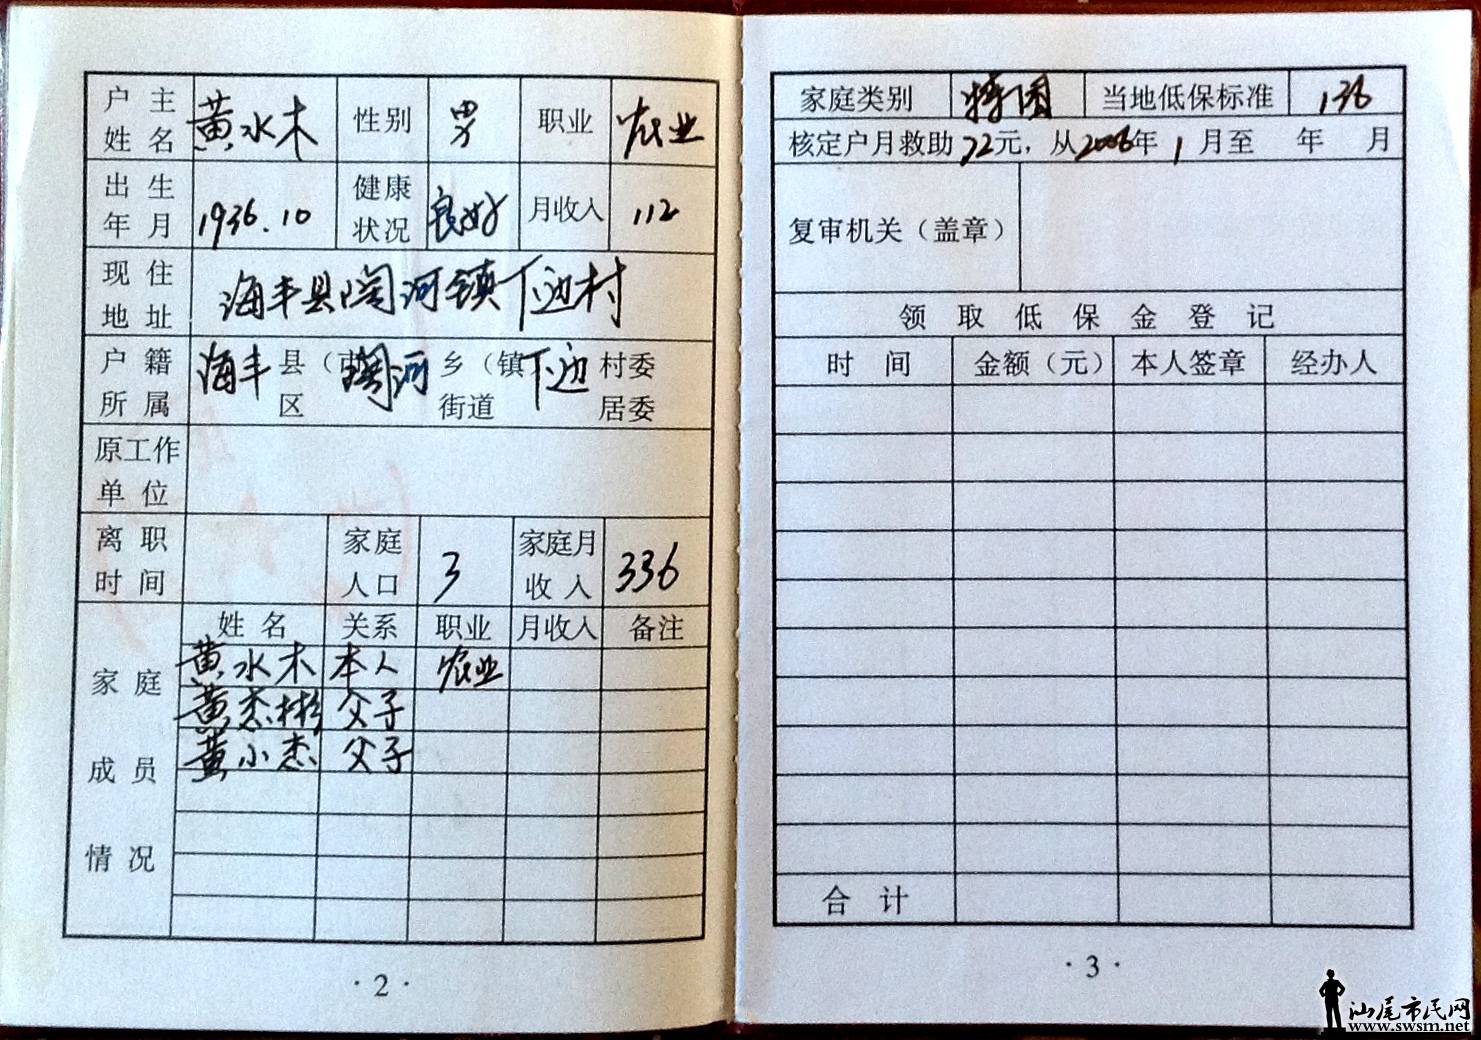 户主姓名 黄水木 性别 男 职业 农业
出生年月 1936.10 健康状况 良好 月收入 112
现住地址 海丰县陶河镇下边村
户籍所属 海丰县(市区 陶河乡(镇街道 下边村委居委
原工作单位
离职时间 家庭人口 3 家庭月收入 336
家庭成员情况 姓名 关系 职业 月收入 备注
黄水木 本人 农业
黄杰彬 父子
黄小杰 父子
·2·
家庭类别 特困 当地低保标准 136
核定户月救助72元,从2006年1月至 年 月
复审机关(盖章)
领取低保金登记
时间 金额(元) 本人签章 经办人
合计
·3·
汕尾市民网
www.swsm.net